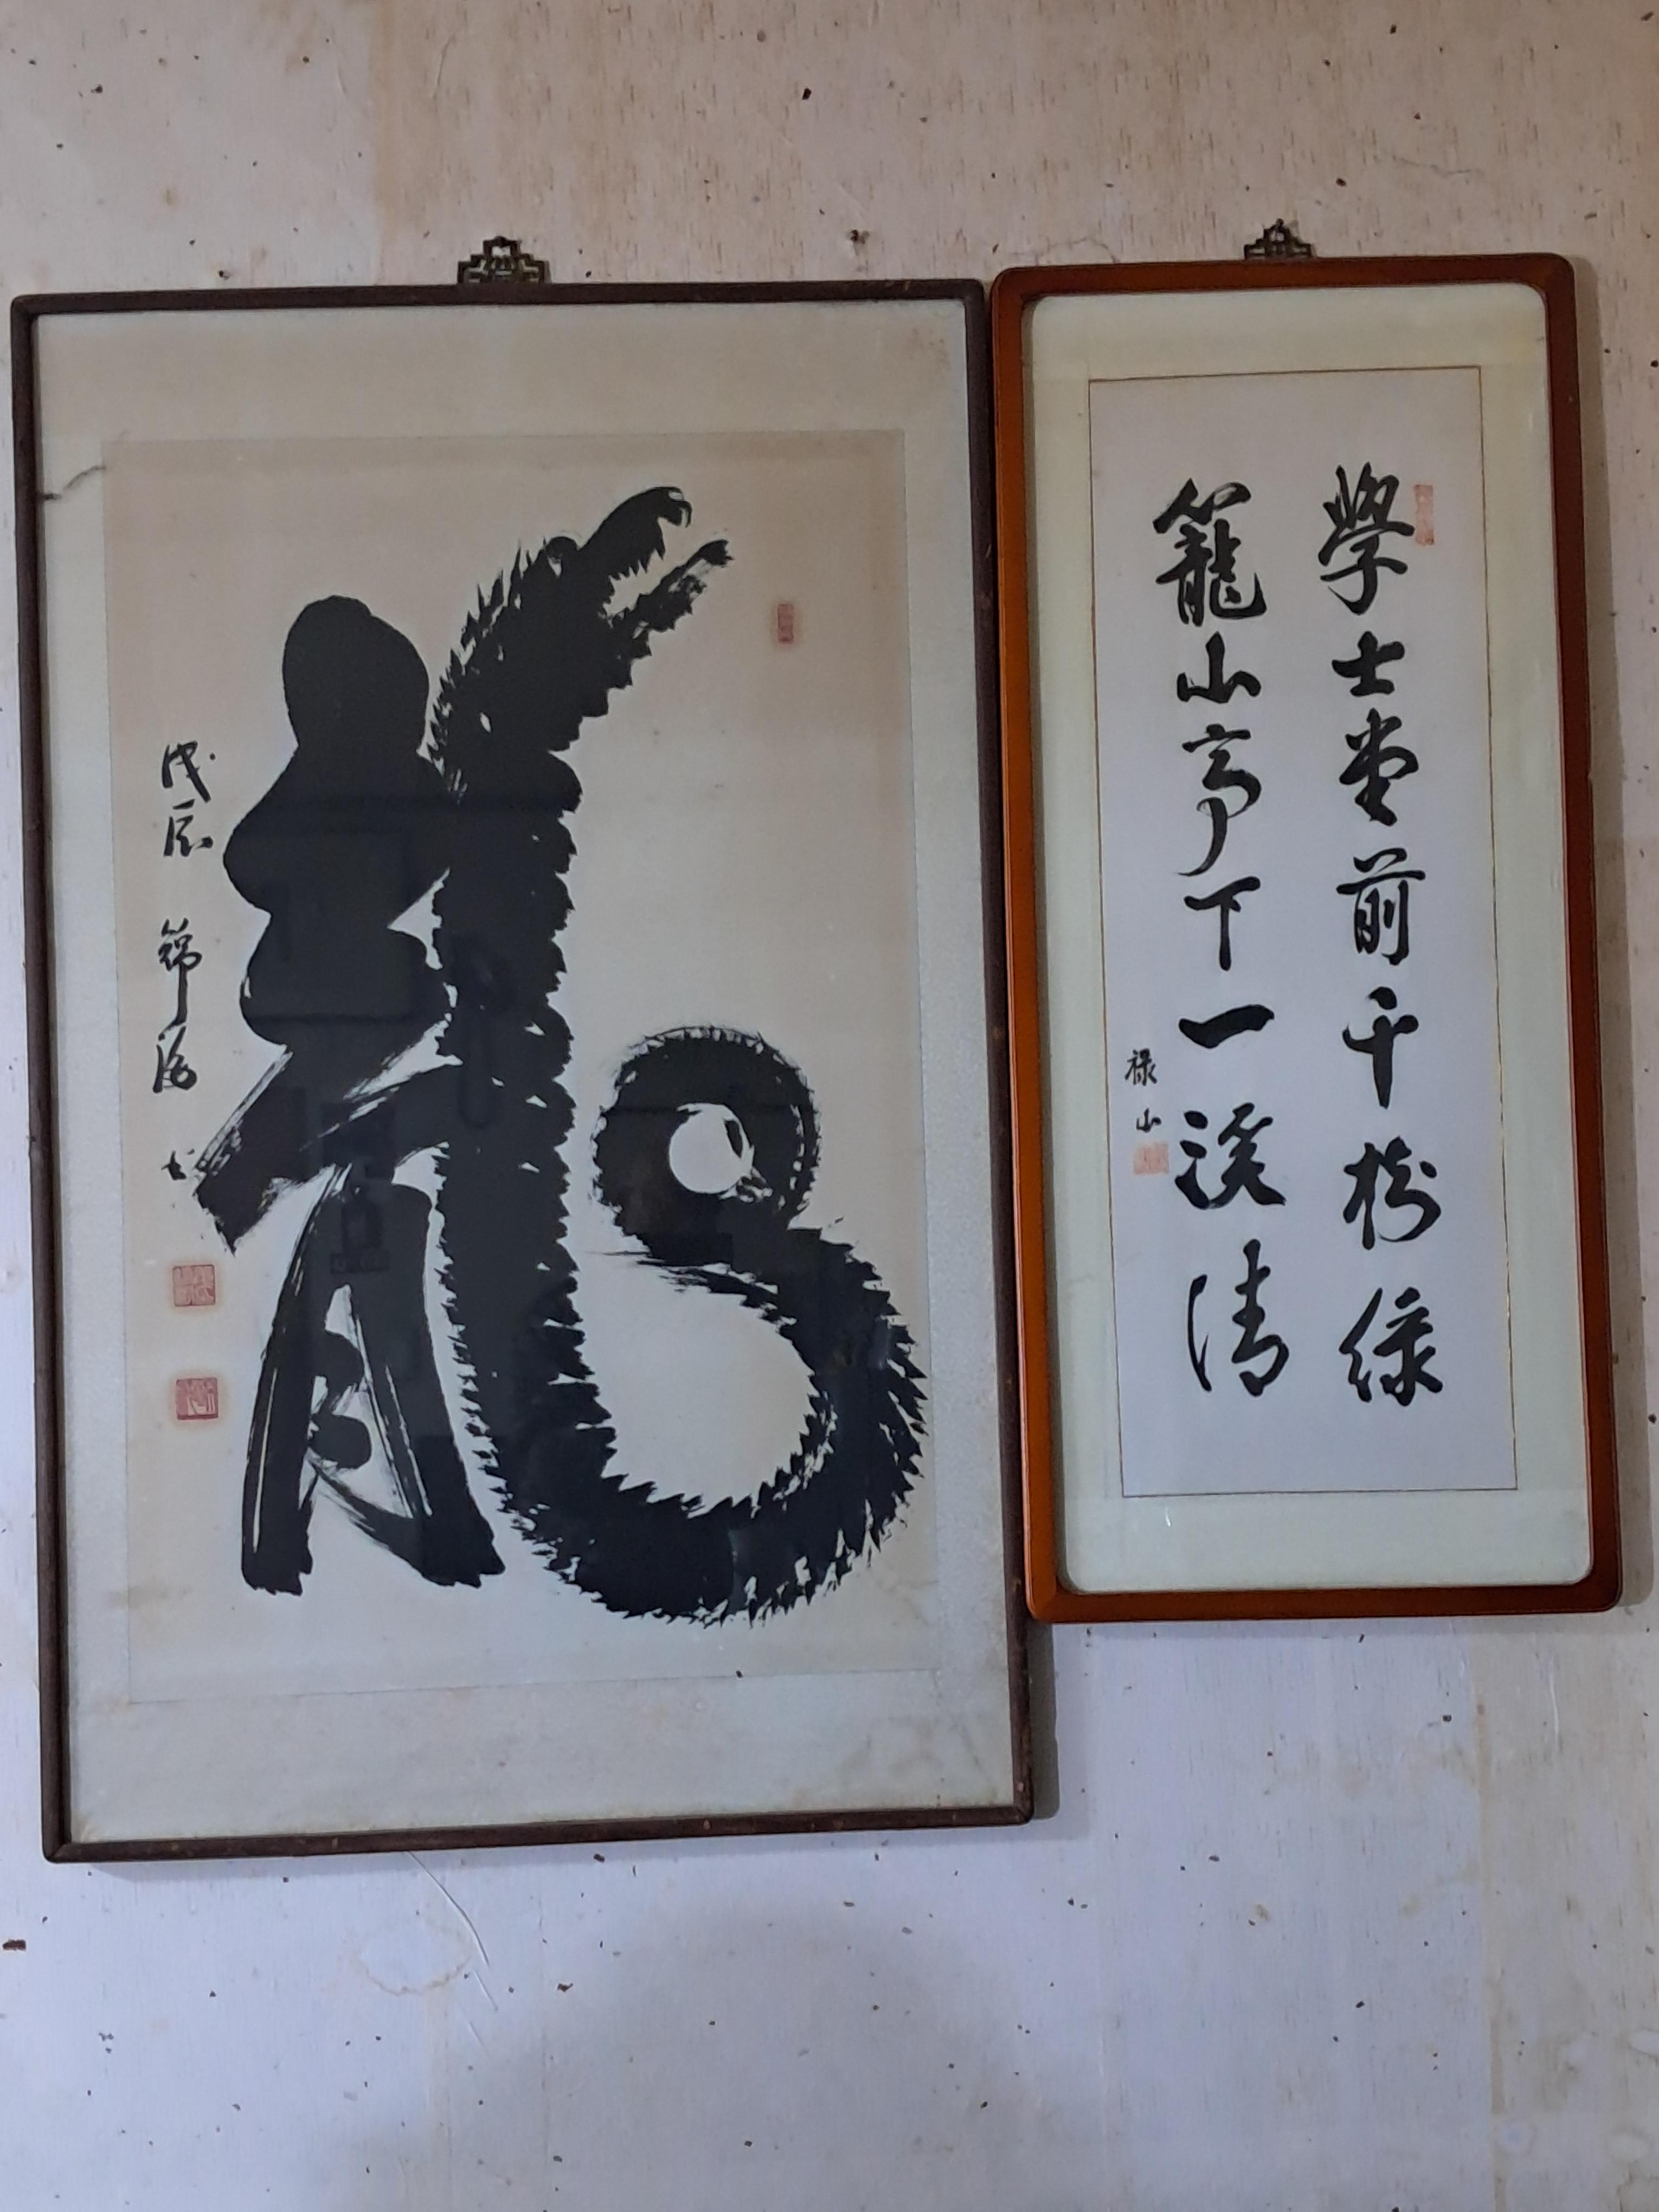 龍
戊辰 錦
學士堂前千樹綠
籠山亭下一溪清
禄山